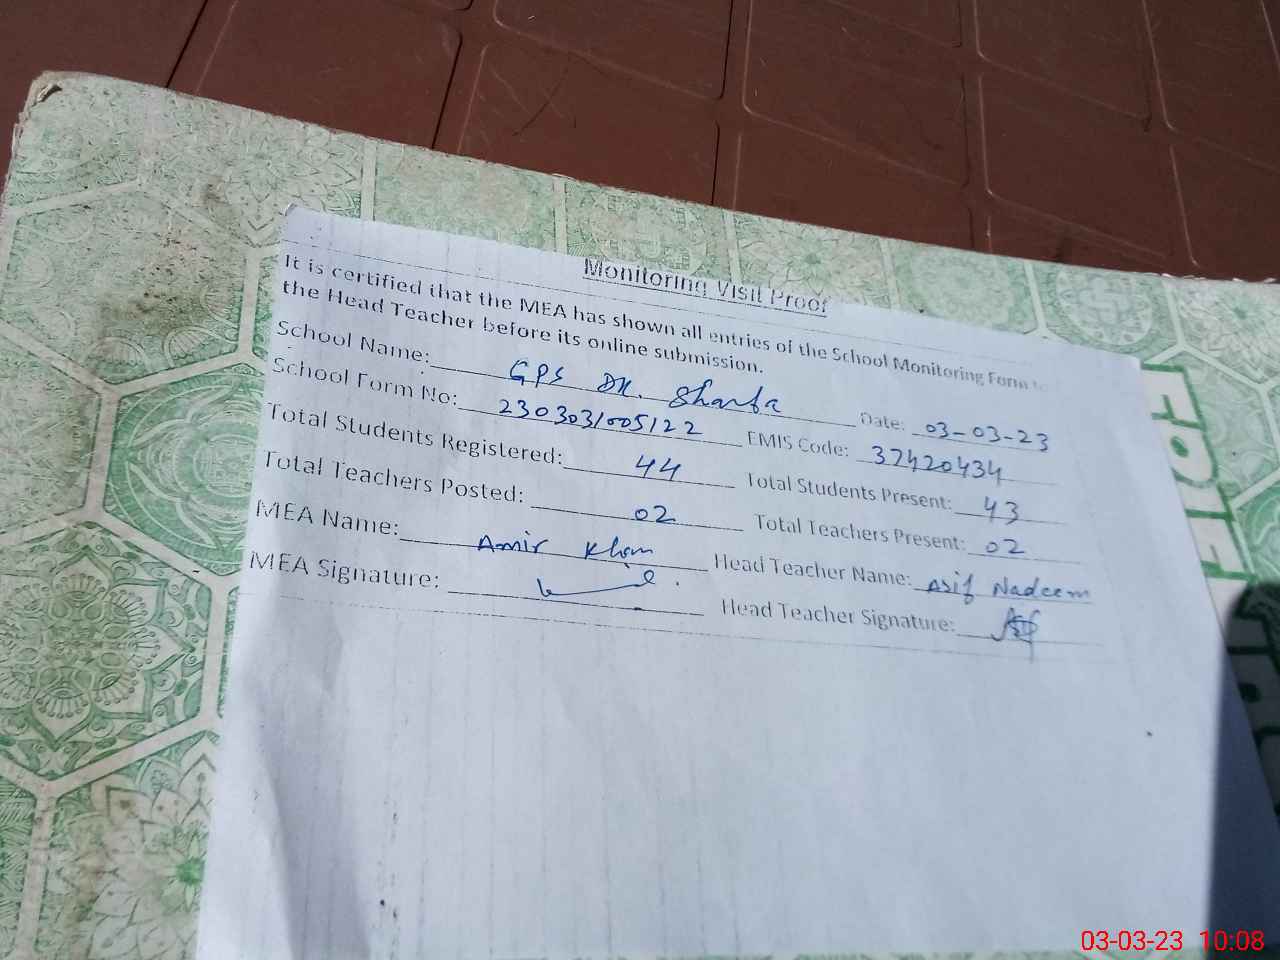 Monitoring Visit Proof
It is certified that the MEA has shown all entries of the School Monitoring Form
the Head Teacher before its online submission.
School Name: GPS DK. Sharfa Date: 03-03-23
School Form No: 2303031005122 EMIS Code: 37420434
Total Students Registered: 44 Total Students Present: 43
Total Teachers Posted: 02 Total Teachers Present: 02
MEA Name: Amir Khan Head Teacher Name: Asif Nadeem
MEA Signature: Head Teacher Signature:
03-03-23 10:08